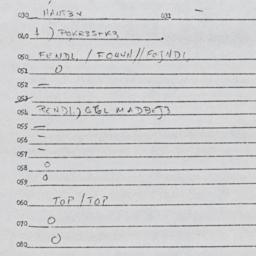 030 HANT3V 031 —
040 1 ) POKR3S+K3 .
050 FENDL / FOUUN//FOJNDL
051 0
052 —
053
054 PENDL) GEL MADBEJ3
055 —
056 —
057 —
058 0
059 0
060 TOP/TOP
070 0
080 0